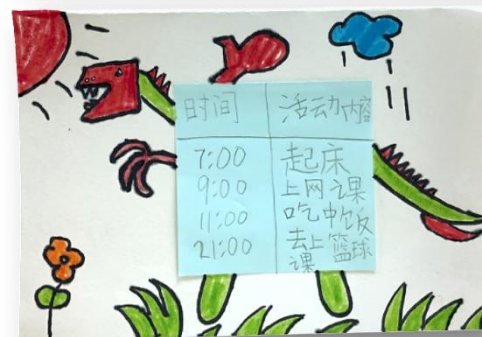 时间 活动内容
7:00 起床
9:00 上网课
11:00 吃中饭
21:00 去上篮球
课